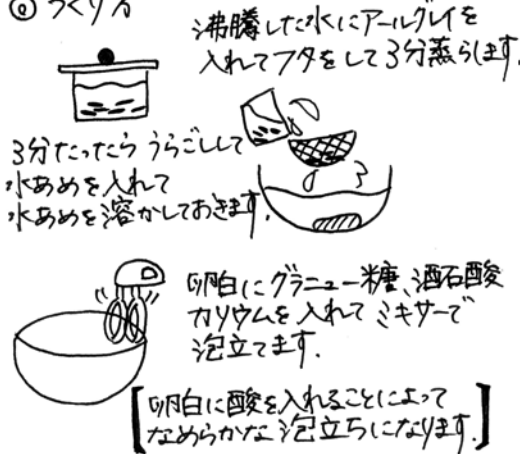 ◎ つくり方
沸騰した水にアールグレイを
入れてフタをして3分蒸らします.
3分たったら うらごしして
水あめを入れて
水あめを溶かしておきます.
卵白にグラニュー糖、酒石酸
カリウムを入れて ミキサーで
泡立てます.
[卵白に酸を入れることによって
なめらかな泡立ちになります.]